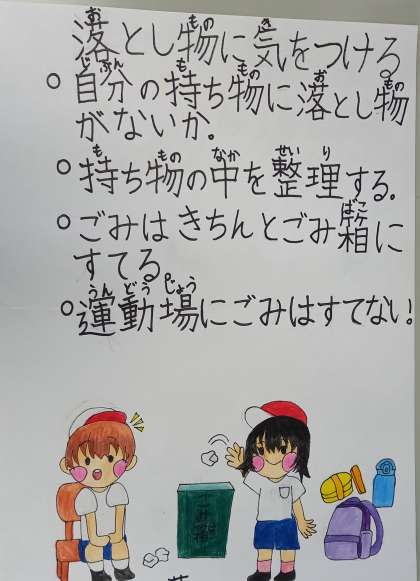 落とし物に気をつける
○自分の持ち物に落とし物
がないか。
○持ち物の中を整理する。
○ごみはきちんとごみ箱に
すてる。
○運動場にごみはすてない!
ゴミ箱